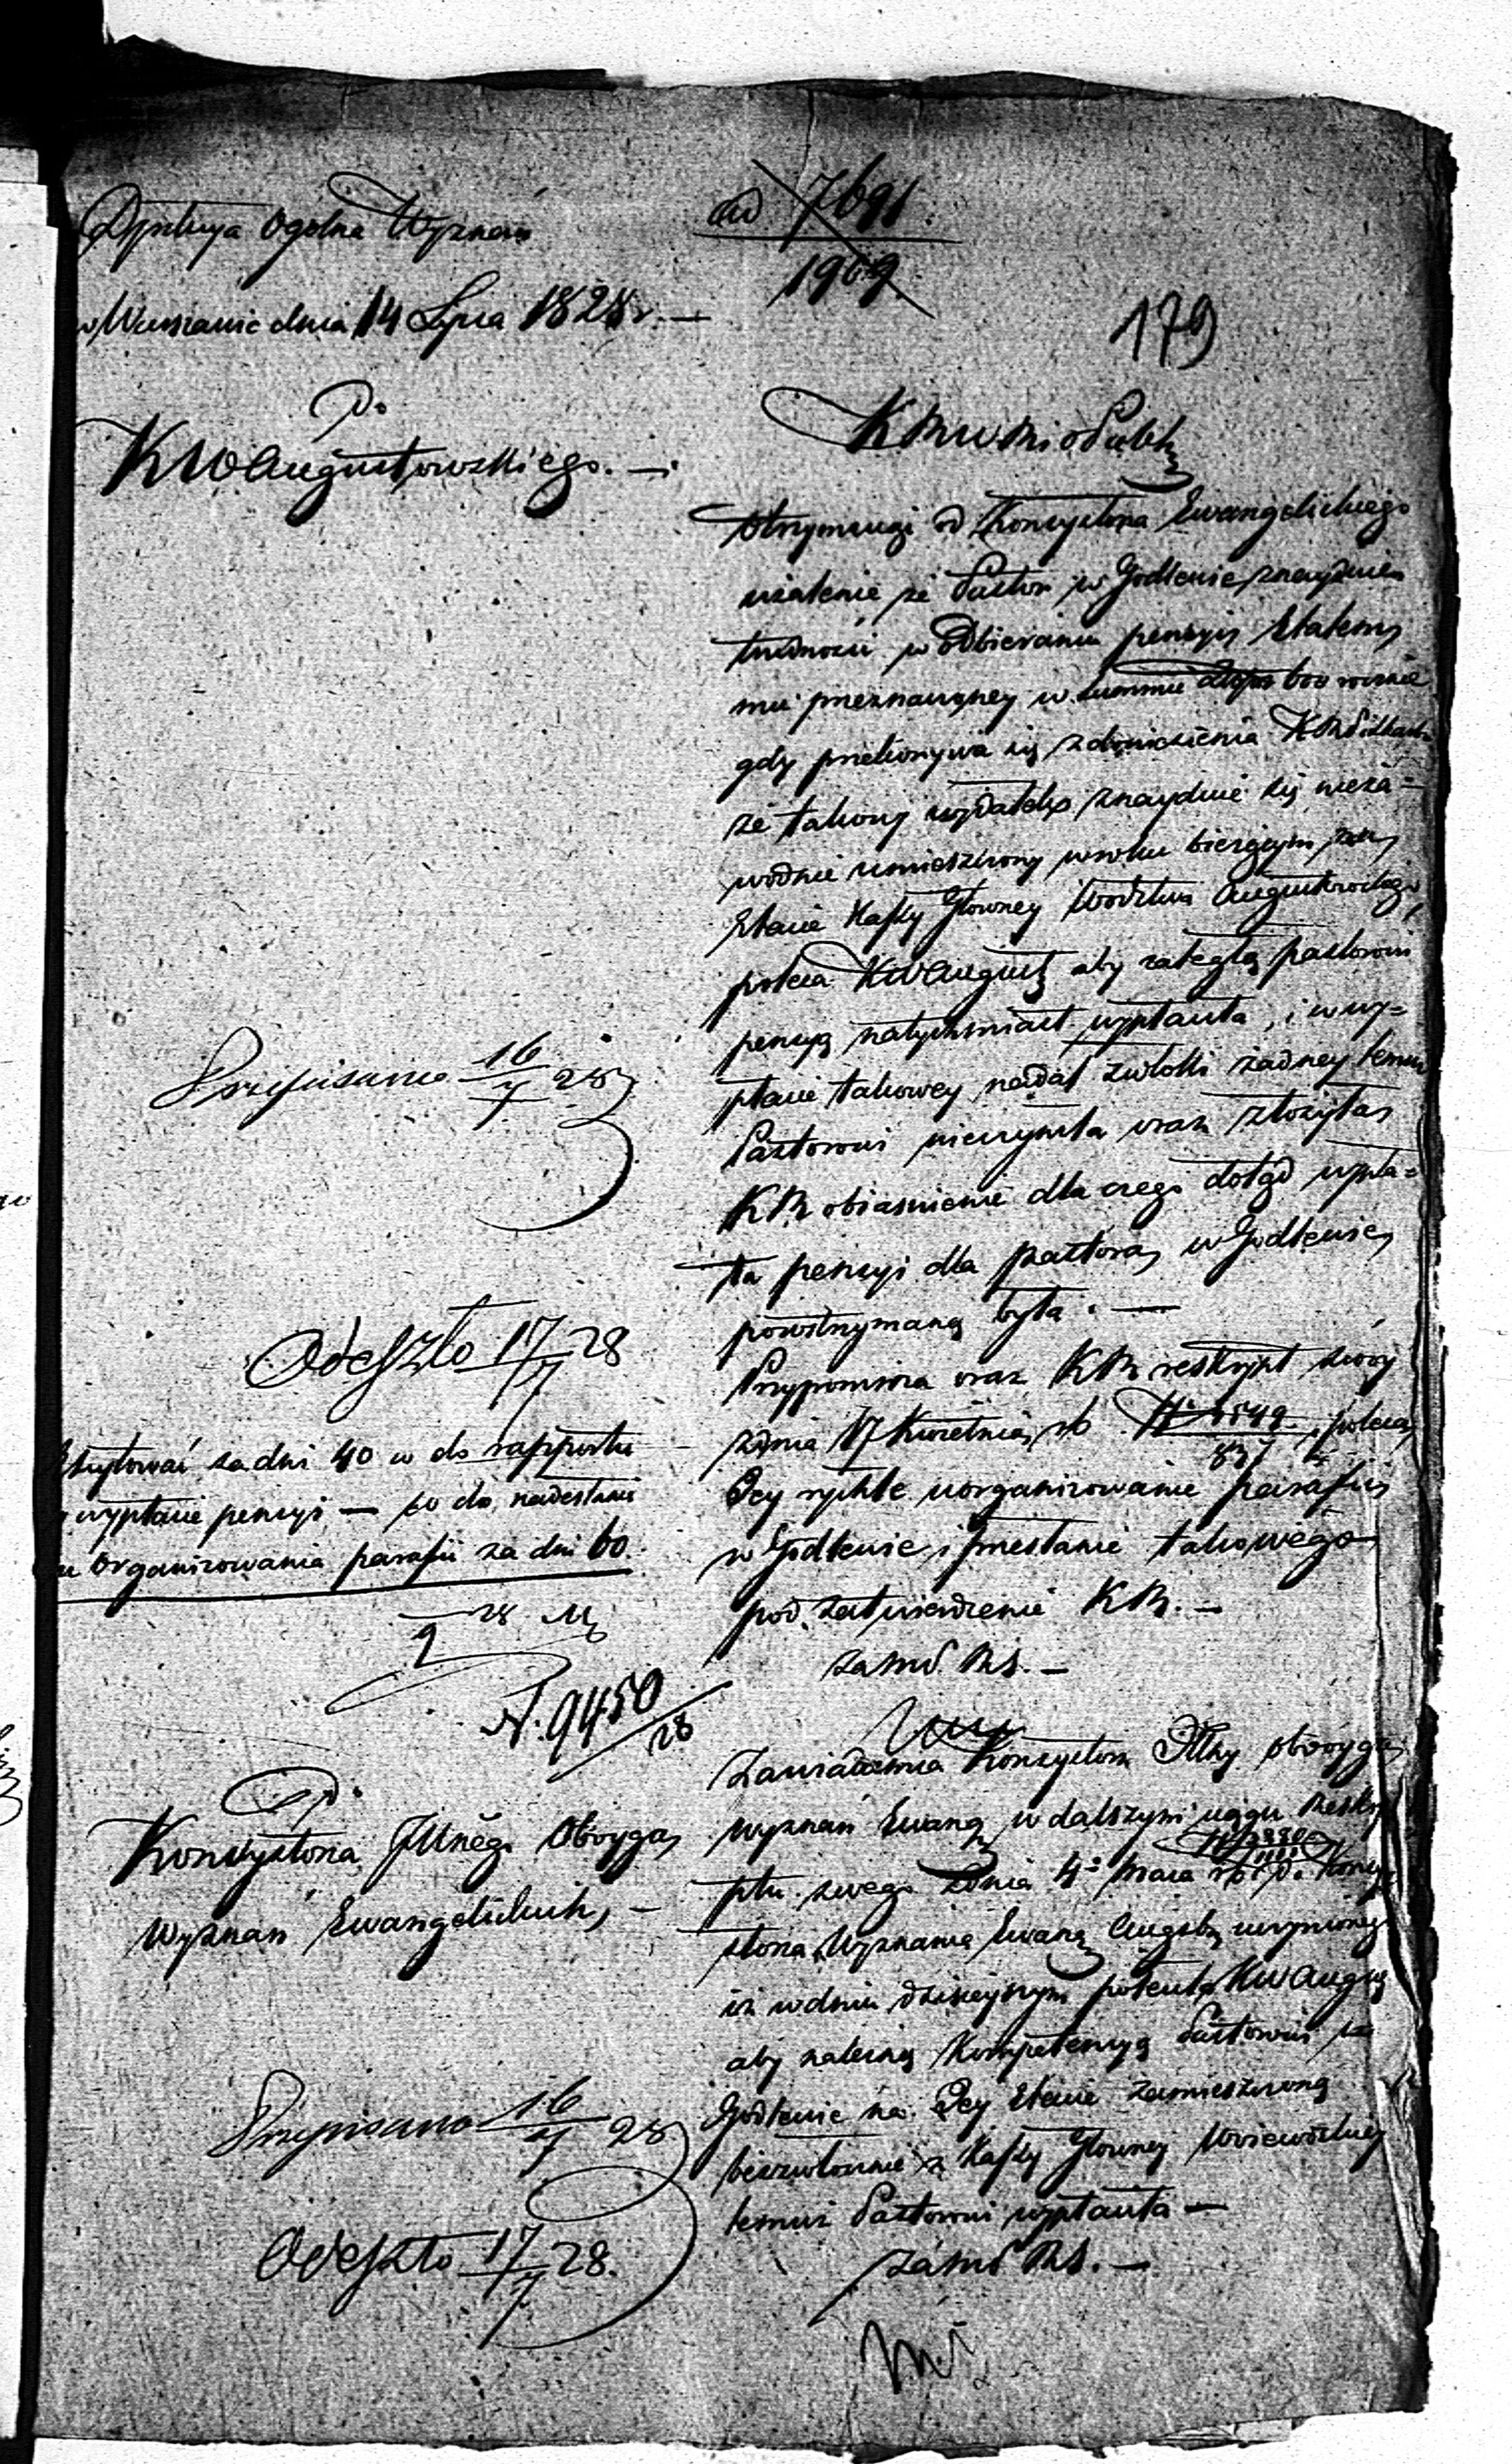 Dyrekcya Ogólna Wyznań
w Warszawie dnia 14 Lipca 1828 r. —
ad 7691
1969
179
Do
KWAugustowskiego. —
KRWRiOPubl
Otrzymawszy od Konsystorza Ewangelickiego
użalenie że Pastor w Godlewie znayduie
trudności w Odbieraniu pensyi Etatem
mu przeznaczoney w summie 600 rocznie
gdy przekonywa się z doniesienia KRPiSkarbu
że takowy wydatek znayduie się nieza-
wodnie umieszczony w roku bieżącym na
Etacie Kassy Głowney Wodztwa Augustowskiego,
poleca KWAugust aby zaległą pastorowi
pensyą natychmiast wypłaciła, i w wy-
płacie takowey nadal zwłoki żadney temu
Pastorowi nieczyniła oraz złożyła
KR obiaśnienie dla czego dotąd wypła-
ta pensyi dla Pastora w Godlewie
powstrzymaną była. —
Przypomina oraz KR reskrypt swóy
z dnia 17 Kwietnia rb poleca
Jey rychłe uorganizowanie parafii
w Godlewie i przesłanie takowego
pod zatwierdzenie KR. —
zamd. RS. —
Przepisano 16/7 28
Odeszło 17/7 28
za dni 40 w do rapportu
wypłacie pensyi — co do nadesłania
organizowania parafii za dni 60.
N. 9450/28
Do
Konsystorza Jlnego Oboyga
Wyznań Ewangelickich, —
Zawiadamia Konsystorz Jlny oboyga
wyznań Ewang w dalszym ciągu Reskry
ptu swego z dnia 4 Maia rb do Konsy
storza Wyznania Ewang Augsb uczynionego
iż w dniu dzisieyszym poleciła KWAugus
aby należną Kompetencyą Pastorowi w
Godlewie na Jey Etacie zamieszczoną
bezzwłocznie z Kassy Głowney Woiewódzkiey
temuż Pastorowi wypłaciła —
zamd RS. —
Przepisano 16/7 28
Odeszło 17/7 28.